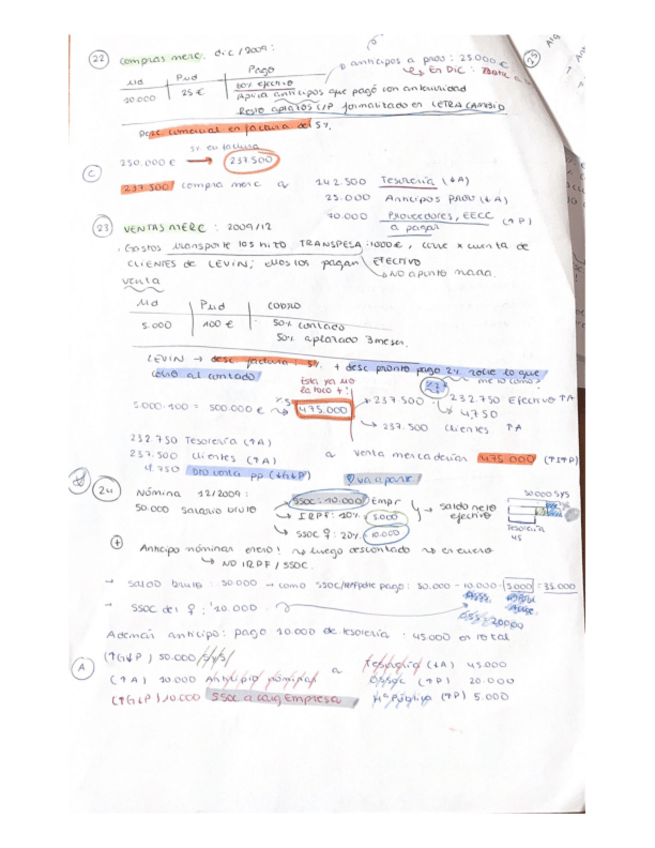 22 compras merc. dic/2009:
anticipos a prov: 25.000 €
→ En DIC:
25
Ud | Pud | Pago
10.000 | 25 € | 60% efectivo
Aplica anticipos que pagó con anterioridad
Resto aplazos C/P formalizado en LETRA CAMBIO
Desc comercial en factura del 5%.
5% en factura
250.000 € → 237.500
C
237.500 compra merc a 142.500 Tesorería (↓A)
25.000 Anticipos prov (↓A)
70.000 Proveedores, EECC (↑P)
a pagar
23 VENTAS MERC: 2009/12
· Gastos transporte los hizo TRANSPESA: 1000 €, corre x cuenta de
CLIENTES de LEVIN; ellos los pagan EFECTIVO
→ NO apunto nada.
venta
Ud | Pud | COBRO
5.000 | 100 € | 50% contado
50% aplazado 3 meses.
LEVIN → desc factura: 5% + desc pronto pago 2% sobre lo que
cobro al contado
Esta ya no
la toco +!
5.000·100 = 500.000 € 475.000 → 237.500 232.750 Efectivo ↑A
→ 4.750
→ 237.500 clientes ↑A
232.750 Tesorería (↑A)
237.500 clientes (↑A) a venta mercaderías 475.000
4.750 Dto venta pp (↓G↓P) va aparte
24 Nómina 12/2009: SSOC = 10.000 Empr
50.000 salario bruto → IRPF: 10% 5.000 → saldo neto
efectivo
→ SSOC: 20% 10.000
50.000 SYS
Tesorería
45
+ Anticipo nóminas enero! → luego descontado → en enero
→ NO IRPF / SSOC.
→ Saldo bruto: 50.000 → como SSOC/IRPF pago: 50.000 - 10.000 - 5000 = 35.000
→ SSOC del: 10.000
Además anticipo: pago 10.000 de tesorería: 45.000 en total
A
(↑G↓P) 50.000 SyS a Tesorería (↓A) 45.000
(↑A) 10.000 Anticipo nóminas OSSOC (↑P) 20.000
(↑G↓P) 10.000 SSOC a carg Empresa Hª Pública (↑P) 5.000